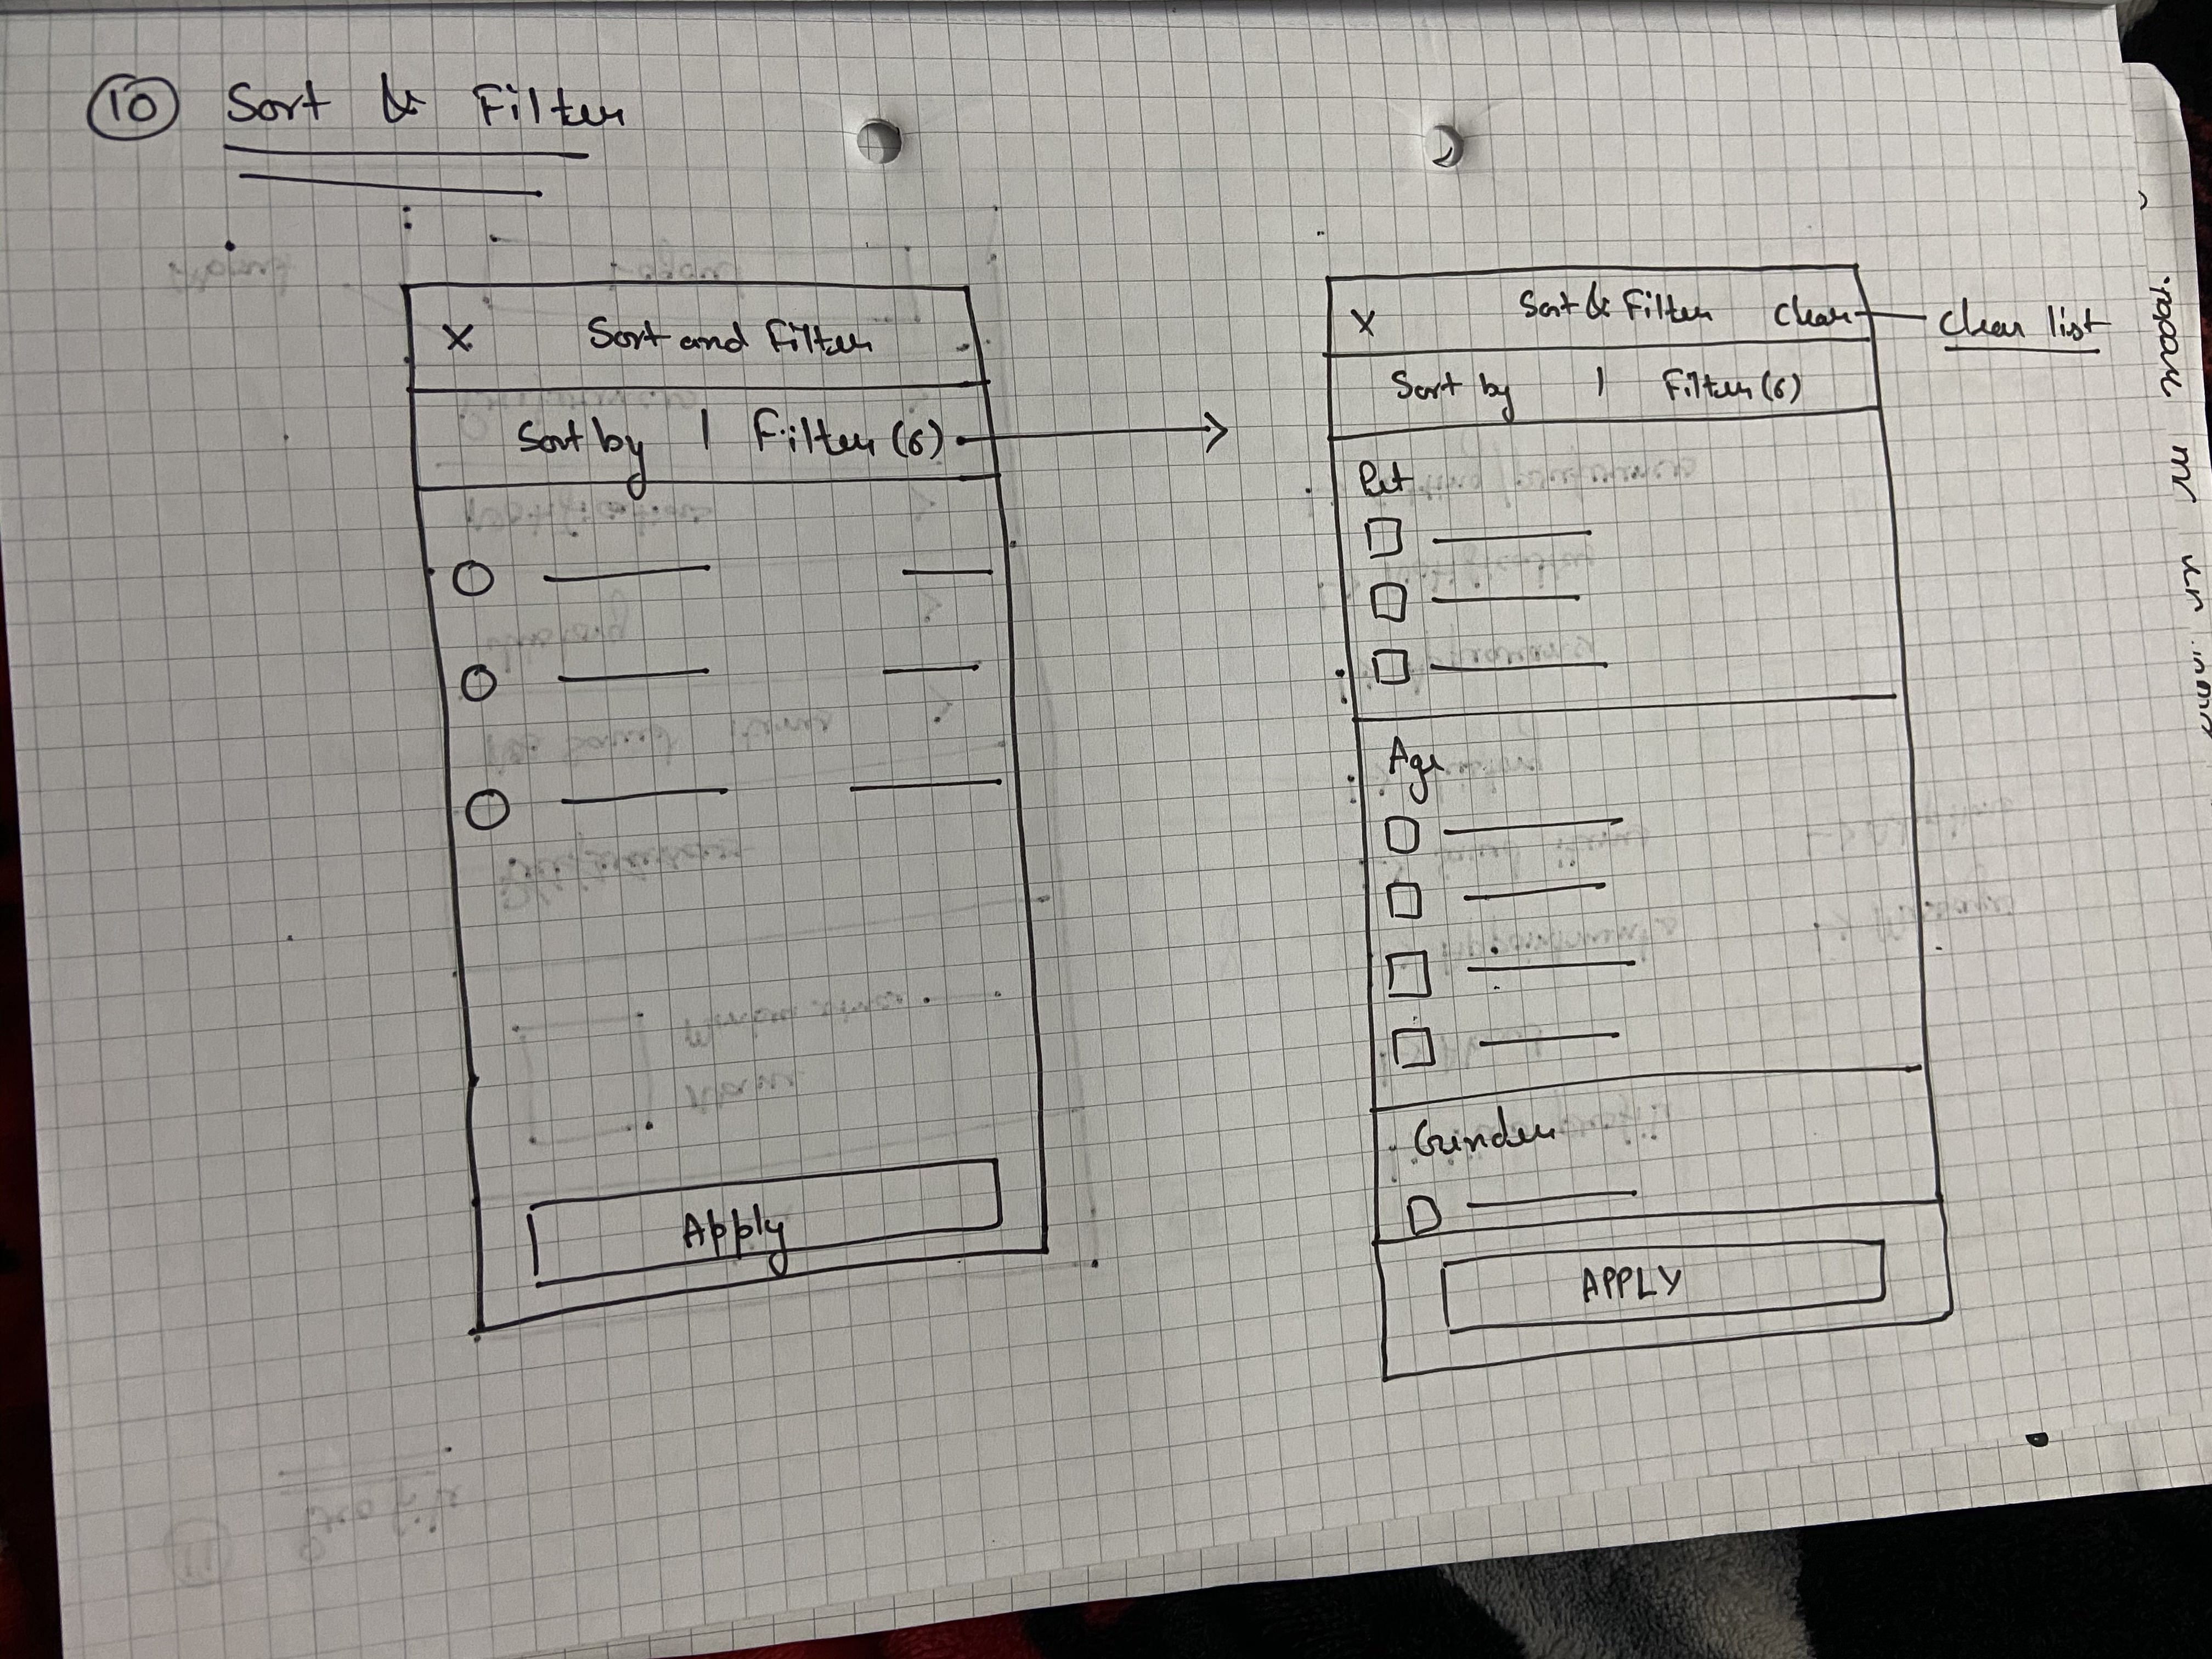 10 Sort & Filter
X Sort and Filter
Sort by | Filter (6)
Apply
X Sort & Filter Clear
clear list
Sort by | Filter (6)
Pet
Age
Gender
APPLY